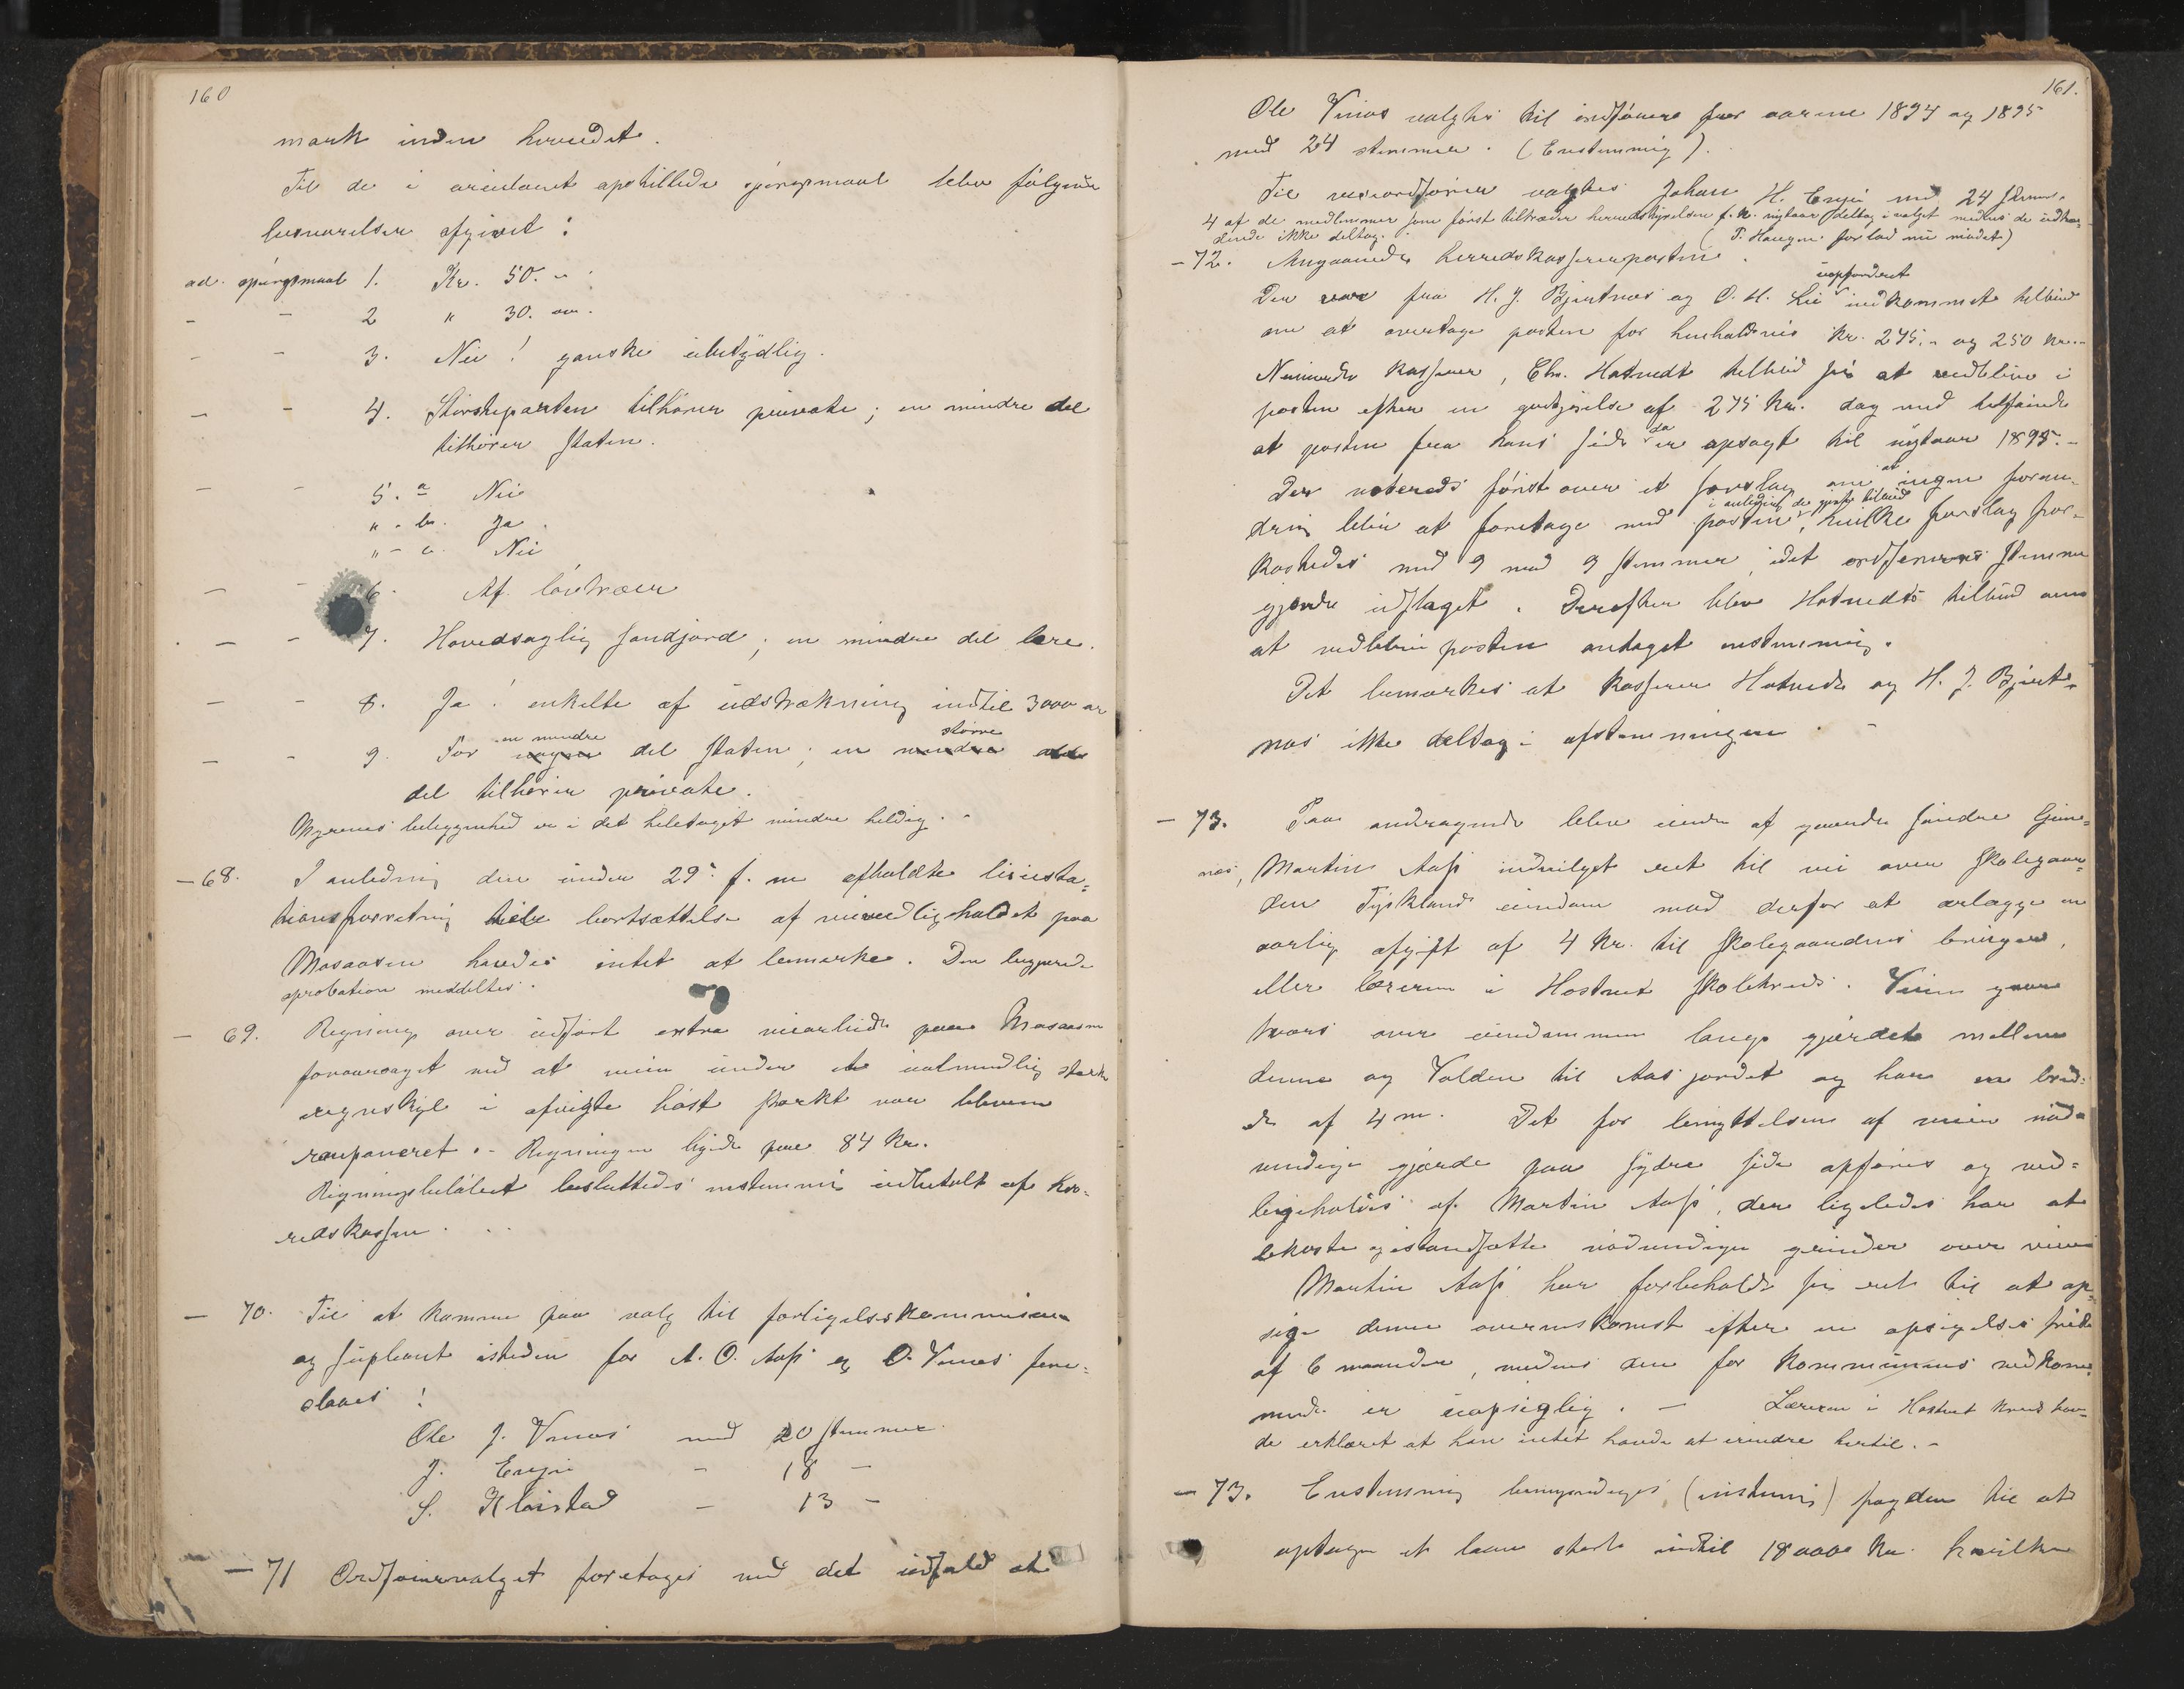 160
mark inden herredet.
Til de i cirkulæret opstillede spörgsmaal blev fölgende
besvarelser afgivet:
ad. spörgsmaal 1. Kr. 50.-
- - 2 " 30. -
- - 3. Nei! ganske ubetydlig.
- - 4. Störsteparten tilhörer private; en mindre del
tilhörer staten.
- - 5. a Nei
" - b. Ja.
" - c. Nei
- - 6. Af lövtræer
- - 7. Hovedsaglig sandjord; en mindre del lere.
- - 8. Ja! enkelte af udstrækning indtil 3000 ar
en mindre större
- - 9. For nogen del staten; en mindre
del tilhörer private.
Myrenes beliggenhed er i det heletaget mindre heldig. -
- 68. I anledning den under 29de f. m. afholdte licista-
tionsforretning bortsættelse af veivedligeholdet paa
Mosaasen havdes intet at bemærke. Den begjærede
aprobation meddeltes.
- 69. Regning over udfört extra veiarbeide paa Mosaasen
foraarsaget ved at veien under et ualmindelig sterkt
regnskyl i afvigte höst sterkt var bleven
ramponeret. - Regningen lyder paa 84 Kr.
Regningsbelöbet besluttedes enstemmig udbetalt af her-
redskassen.
- 70. Til at komme paa valg til forligelseskommissær
og supleant isteden for A. O. Aass og O. Vinnes fore-
sloaes:
Ole J. Vinnes med 20 stemmer
J. Enge - 18 -
S. Klaistad - 13 -
- 71 Ordförervalget foretoges med det udfald at
161.
Ole Vinnes valgtes til ordförer for aarene 1894 og 1895
med 24 stemmer. (Enstemmig).
Til viceordförer valgtes Johan H. Enge med 24 stem.
4 af de medlemmer som först tiltræder herredsstyrelsen f. k. nytaar deltog i valget medens de udtræ-
dende ikke deltog. (P. Haugen forlod nu mödet)
- 72. Angaaende herredskassererposten.
uopfordret
Der var fra H. J. Bjertnæs og O. H. Lie indkommet tilbud
om at overtage posten for henholdsvis kr. 245.- og 250 kr.-
Nuværende kasserer, Chr. Hotvedt tilböd sig at vedblive i
posten efter en godtgjörelse af 275 kr. dog med tilföiende
da
at posten fra hans side er opsagt til nytaar 1895.-
at
Der voteredes först over et forslag om ingen foran-
i anledning de gjorte tilbud
dring blev at foretage med posten, hvilket forslag for-
kastedes med 9 mod 9 stemmer, idet ordförerens stemme
gjorde udslaget. Derefter blev Hotvedts tilbud om
at vedblive posten antaget enstemmig.
Det bemærkes at kasserer Hotvedt og H. J. Bjert-
næs ikke deltog i afstemningen.
- 73. Paa andragende blev eieren af gaarden söndre Gjer-
næs, Martin Aass indvilget ret til vei over skolegaar-
den Tyskland eiendom mod derfor at erlægge en
aarlig afgift af 4 kr. til skolegaardens bruger,
eller læreren i Hostvet skolekreds. Veien gaar
tvers over eiendommen langs gjærdet mellem
denne og Volden til Aas jordet og har en bred-
de af 4 m. Det for benyttelsen af veien nöd-
vendige gjærde paa sydre side opföres og ved-
ligeholdes af Martin Aass, der ligeledes har at
bekoste og istandsætte nödvendige grinder over veien
Martin Aass har forbeholdt sig ret til at op-
sige denne overenskomst efter en opsigelses frist
af 6 maaneder, medens den for kommunens vedkom-
mende er uopsigelig. - Læreren i Hostvet kreds hav-
de erklæret at han intet havde at erindre hertil. -
- 73. Enstemmig bemyndiges (enstemmig) fogden til at
optage et laan stort indtil 18000 kr. hvilken